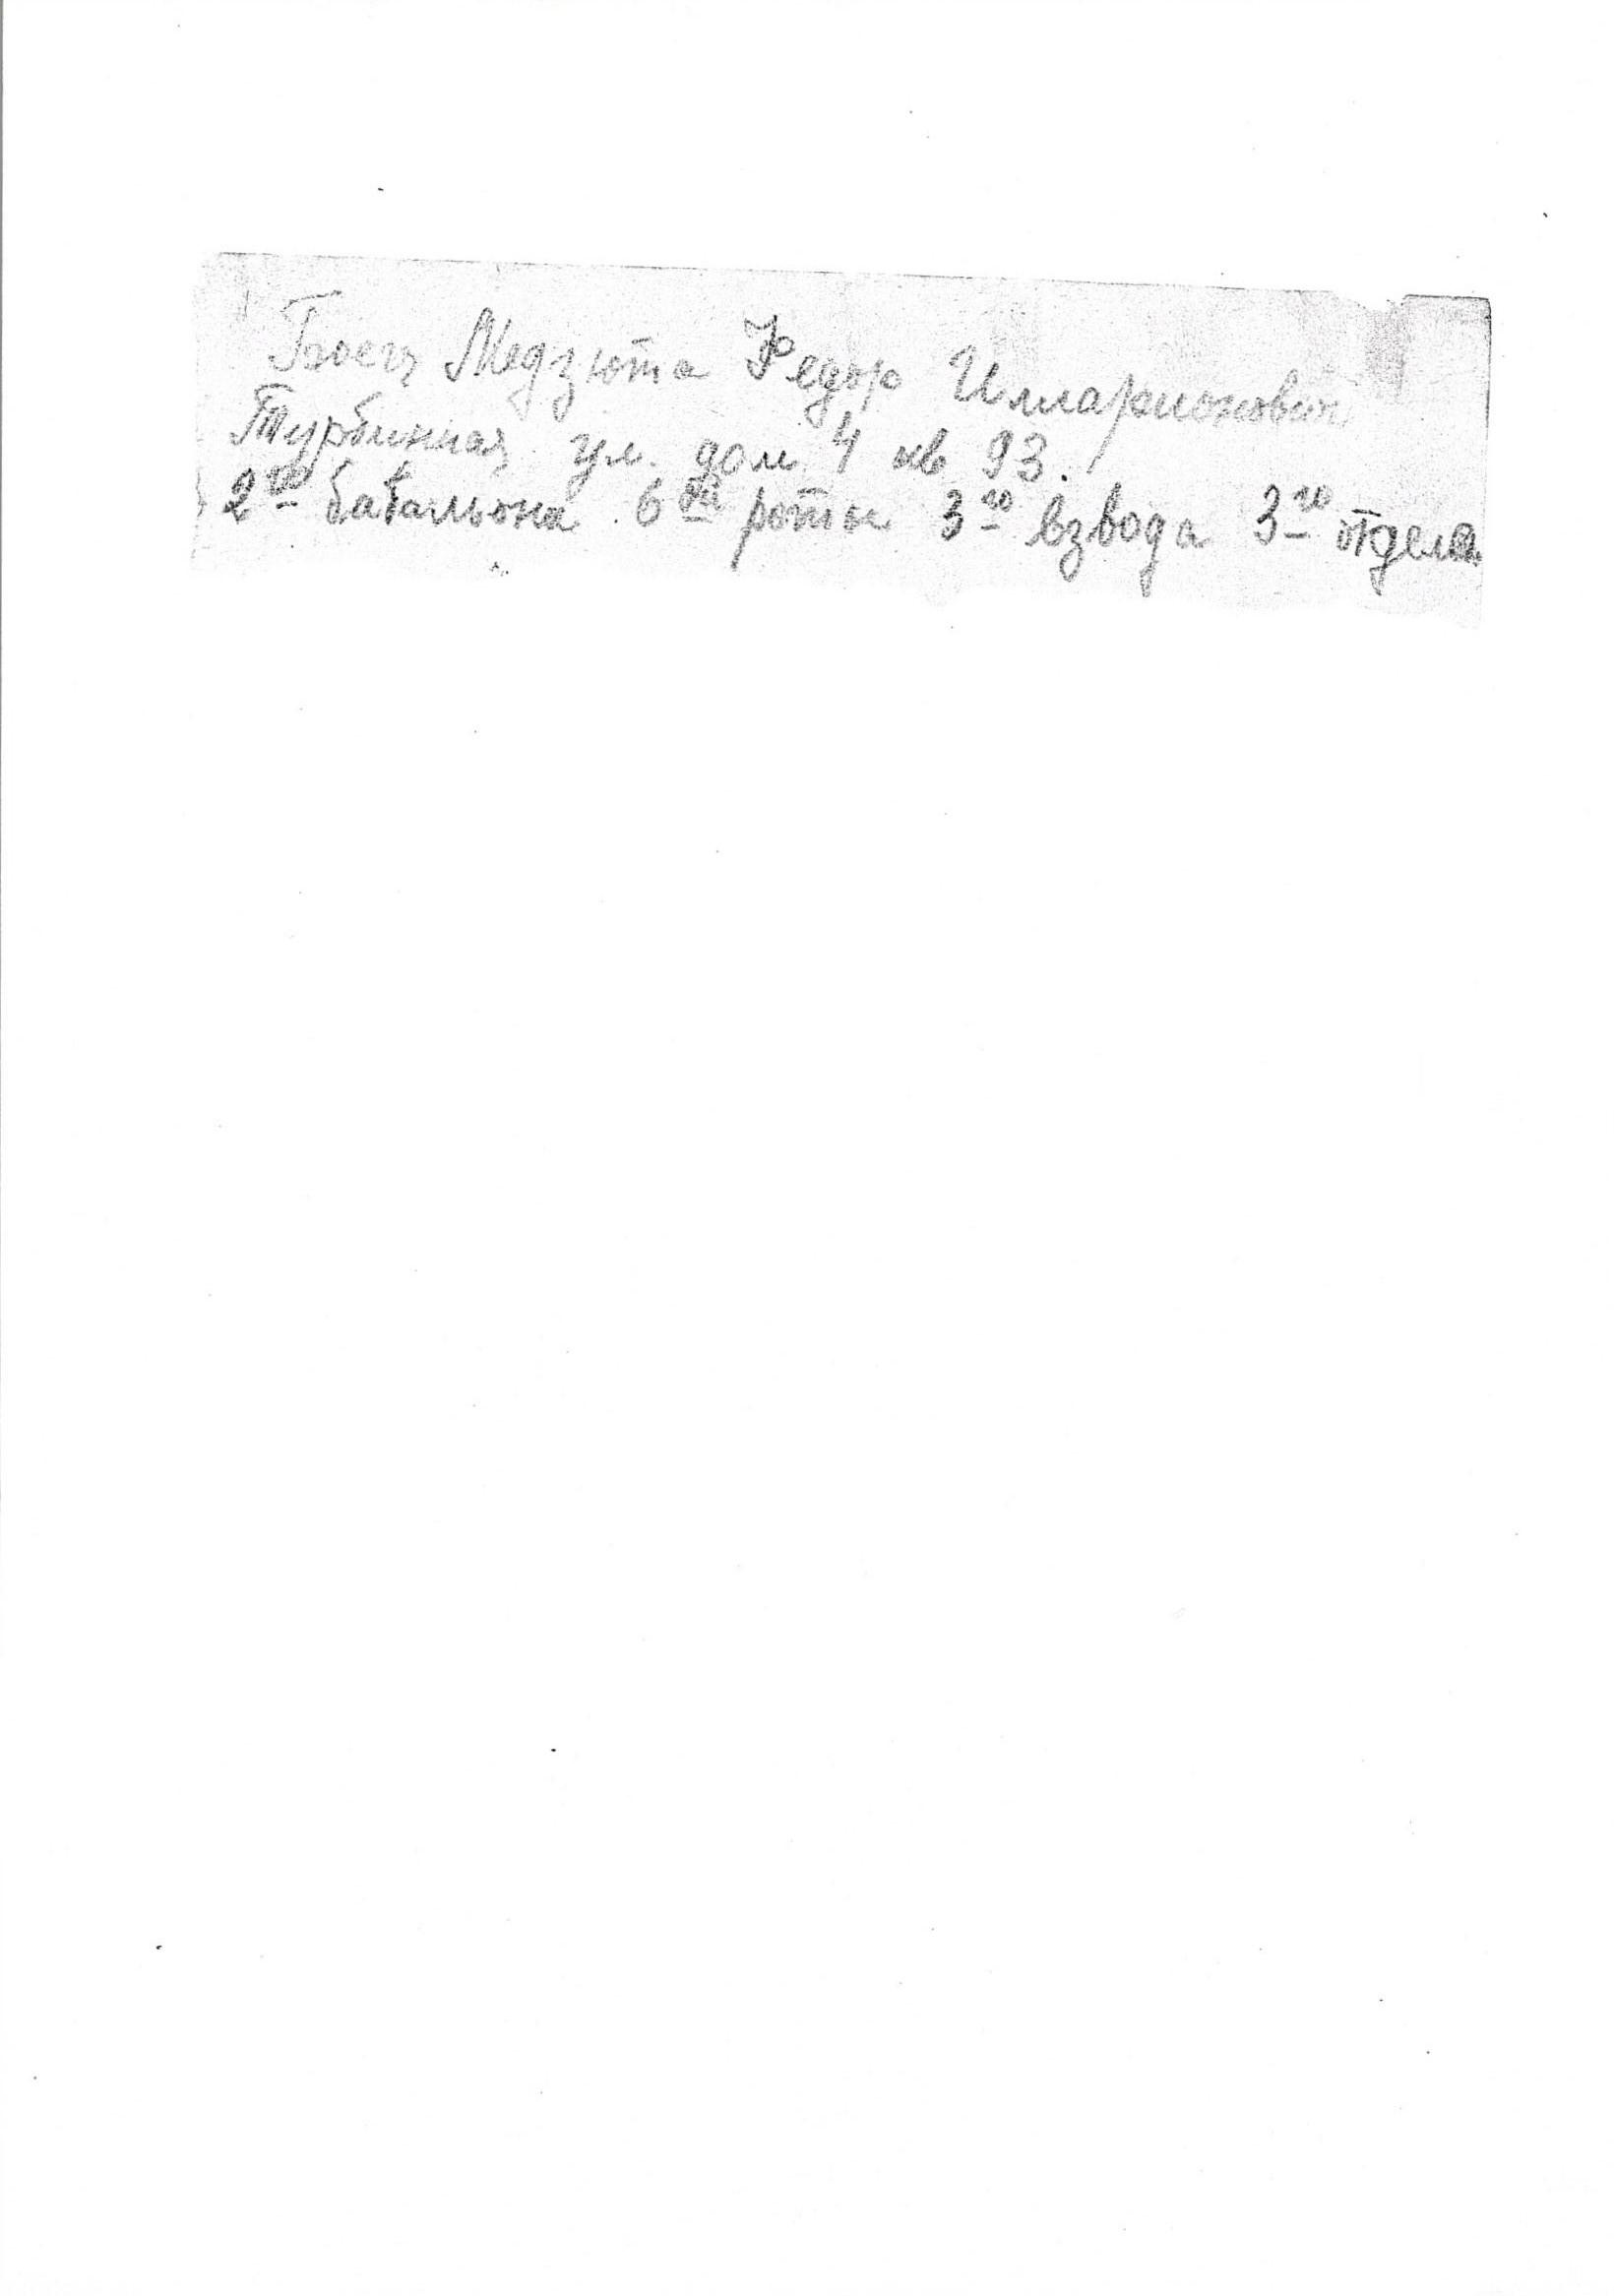 Боец Медзюта Федор Илларионович
Турбинная ул. дом 4 кв 93.
2го батальона 6ой роты 3го взвода 3го отдела